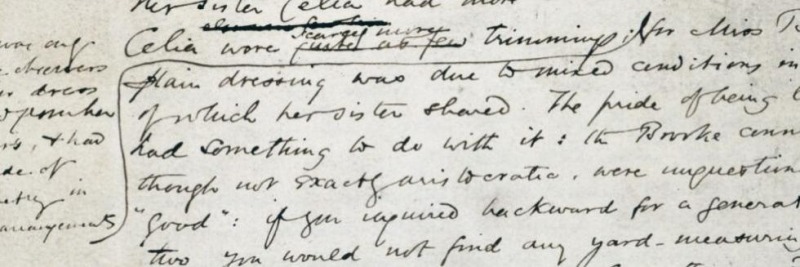 her sister Celia had more
Celia wore scarcely more trimmings; for Miss
plain dressing was due to mixed conditions in
of which her sister shared. The pride of being
had something to do with it: the Brooke conn
though not exactly aristocratic, were unquestion
"good": if you inquired backward for a generat
two you would not find any yard-measuring
was any
dress
&amp; had
de of
in
arrangements